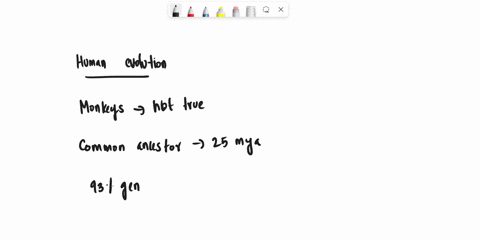 Human evolution
Monkeys → not true
Common ancestor → 25 mya
93% gen